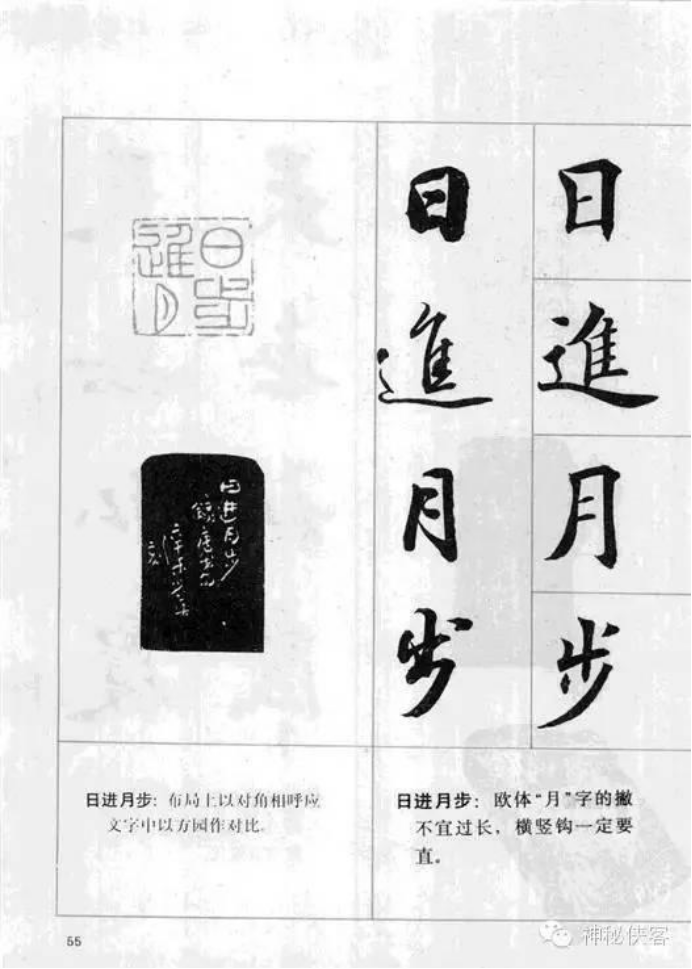 日進月步
日進月步
日進
步月
日进月步
日进月步：布局上以对角相呼应
文字中以方园作对比。
日进月步：欧体“月”字的撇
不宜过长，横竖钩一定要
直。
55
神秘侠客